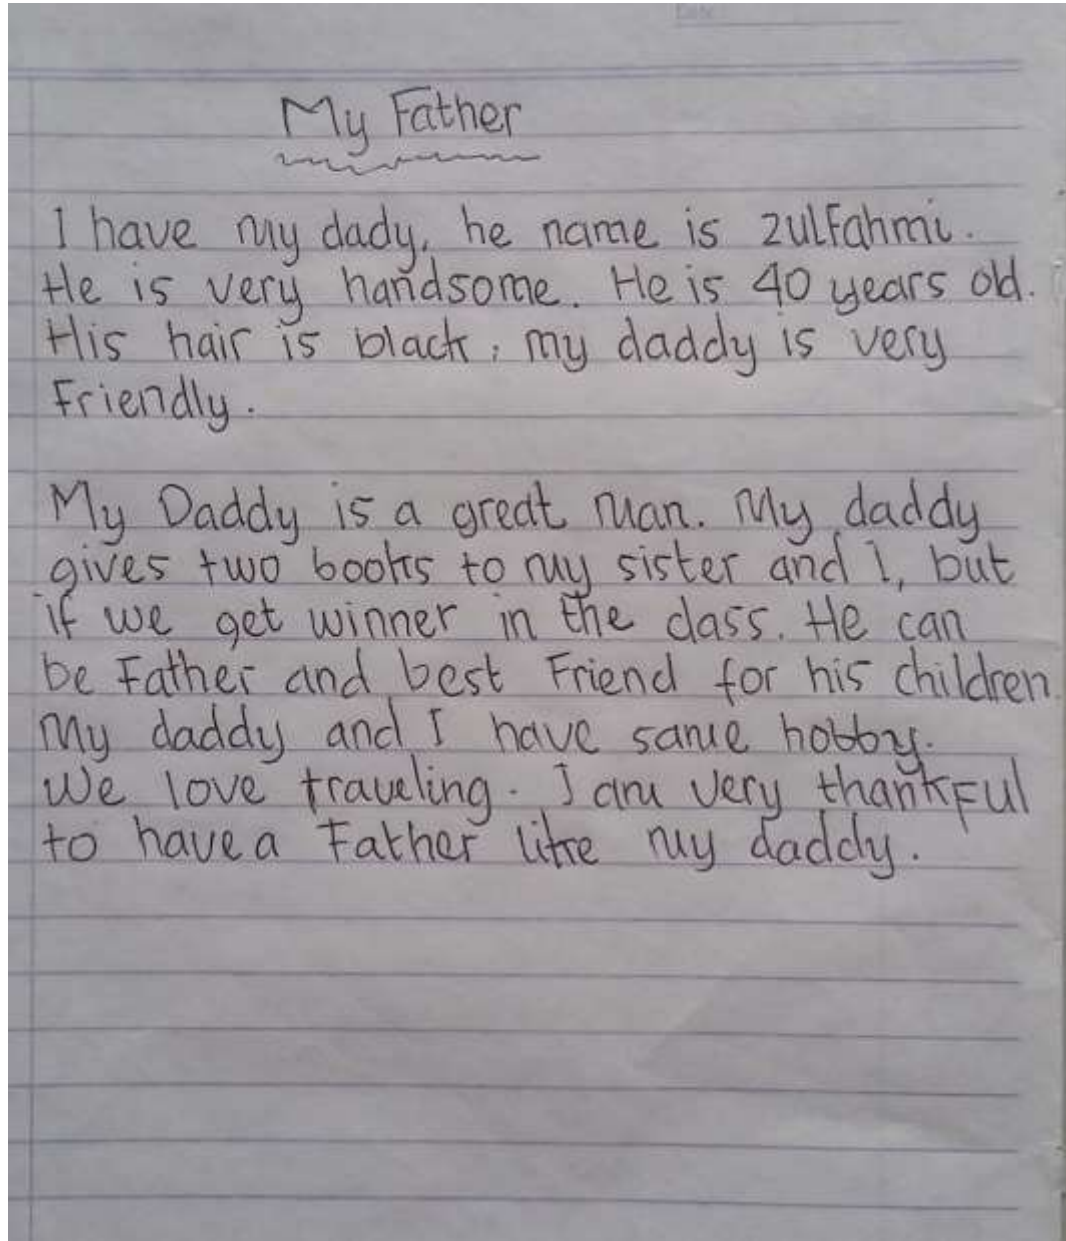 Date
My Father
I have my dady, he name is zulfahmi.
He is very handsome. He is 40 years old.
His hair is black, my daddy is very
Friendly.
My Daddy is a great man. My daddy
gives two books to my sister and I, but
if we get winner in the class. He can
be Father and best Friend for his children.
My daddy and I have same hobby.
We love traveling. I am very thankful
to have a Father like my daddy.